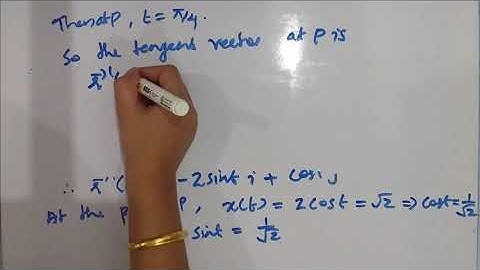 Then at P, t = π/4.
So the tangent vector at P is
r̄'(
∴ r̄'( -2sint i + cost j
At the P, x(t) = 2cost = √2 ⇒ cost = 1/√2
sint = 1/√2